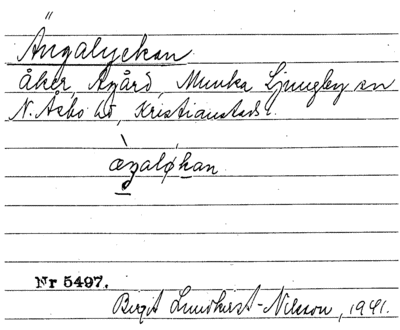 Ängalyckan
åker, Axård, Munka Ljungby sn
N. Åsbo hd, Kristianstads l.
æŋaløkan
Nr 5497.
Birgit Lundkvist-Nilsson, 1941.